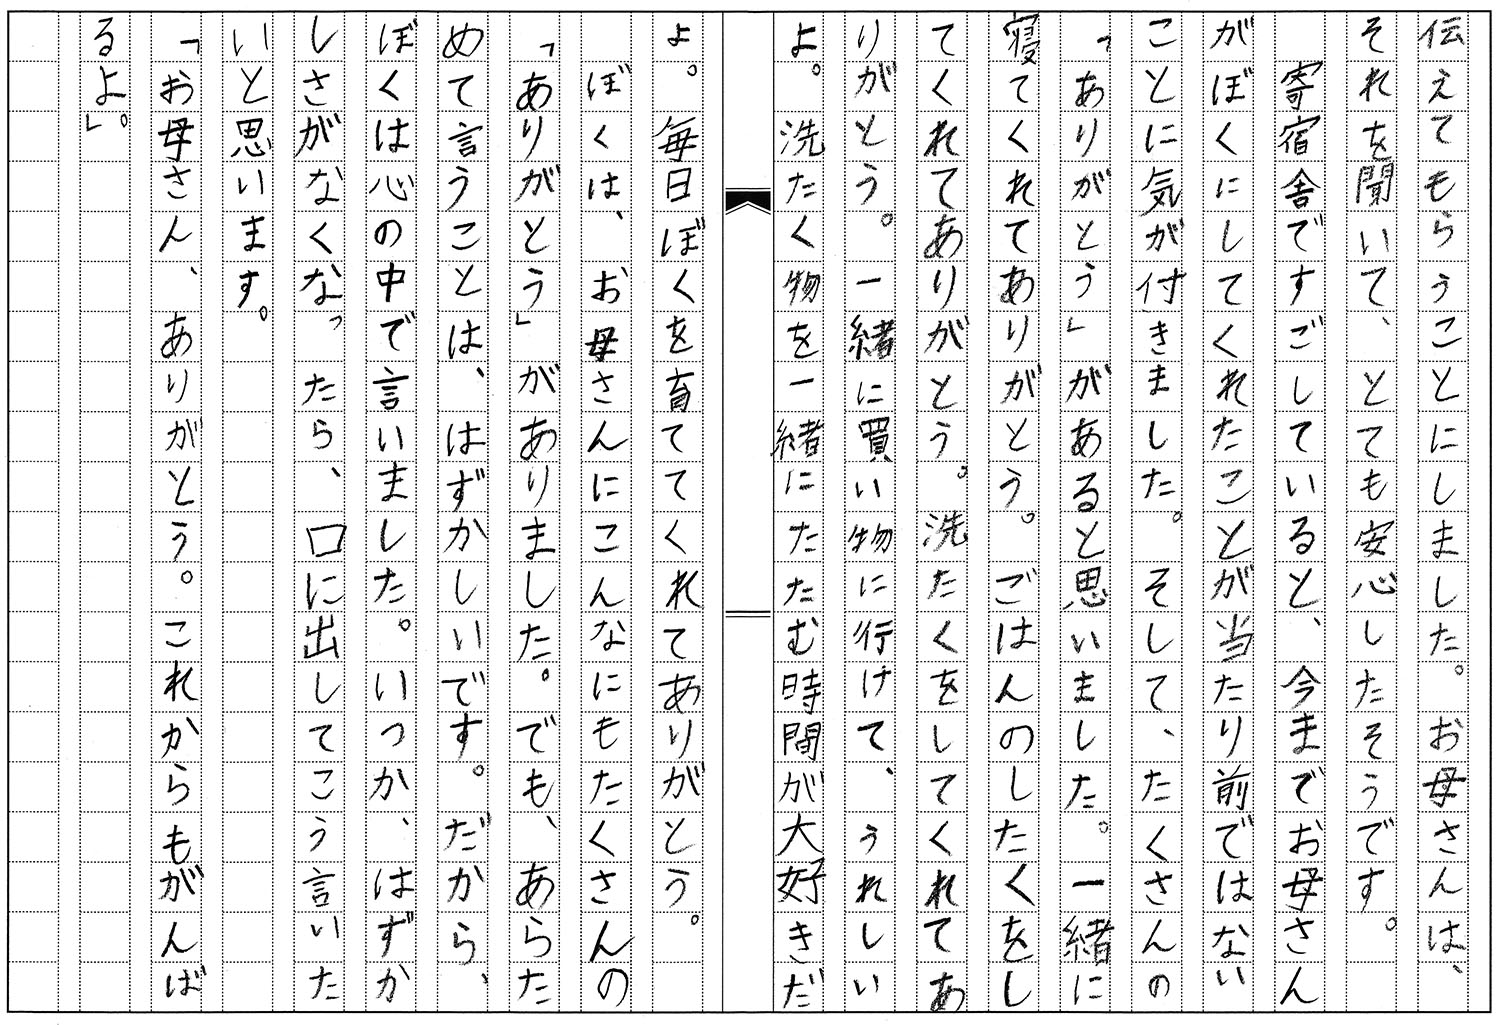 伝えてもらうことにしました。お母さんは、
それを聞いて、とても安心したそうです。
寄宿舎ですごしていると、今までお母さん
がぼくにしてくれたことが当たり前ではない
ことに気が付きました。そして、たくさんの
「ありがとう」があると思いました。一緒に
寝てくれてありがとう。ごはんのしたくをし
てくれてありがとう。洗たくをしてくれてあ
りがとう。一緒に買い物に行けて、うれしい
よ。洗たく物を一緒にたたむ時間が大好きだ
よ。毎日ぼくを育ててくれてありがとう。
ぼくは、お母さんにこんなにもたくさんの
「ありがとう」がありました。でも、あらた
めて言うことは、はずかしいです。だから、
ぼくは心の中で言いました。いつか、はずか
しさがなくなったら、口に出してこう言いた
いと思います。
「お母さん、ありがとう。これからもがんば
るよ」。